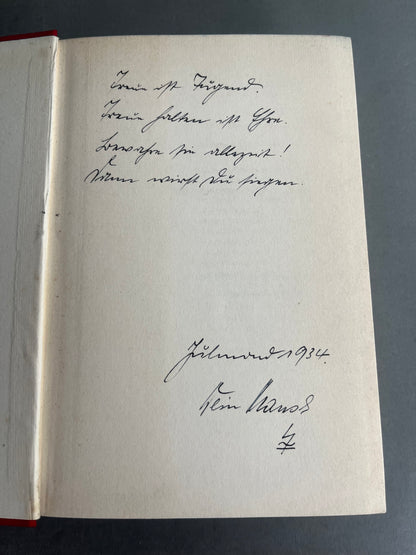 Treue ist Tugend.
Treue halten ist Ehre.
Bewahre sie allezeit!
Dann wirst Du siegen.
Julmond 1934.
Dein